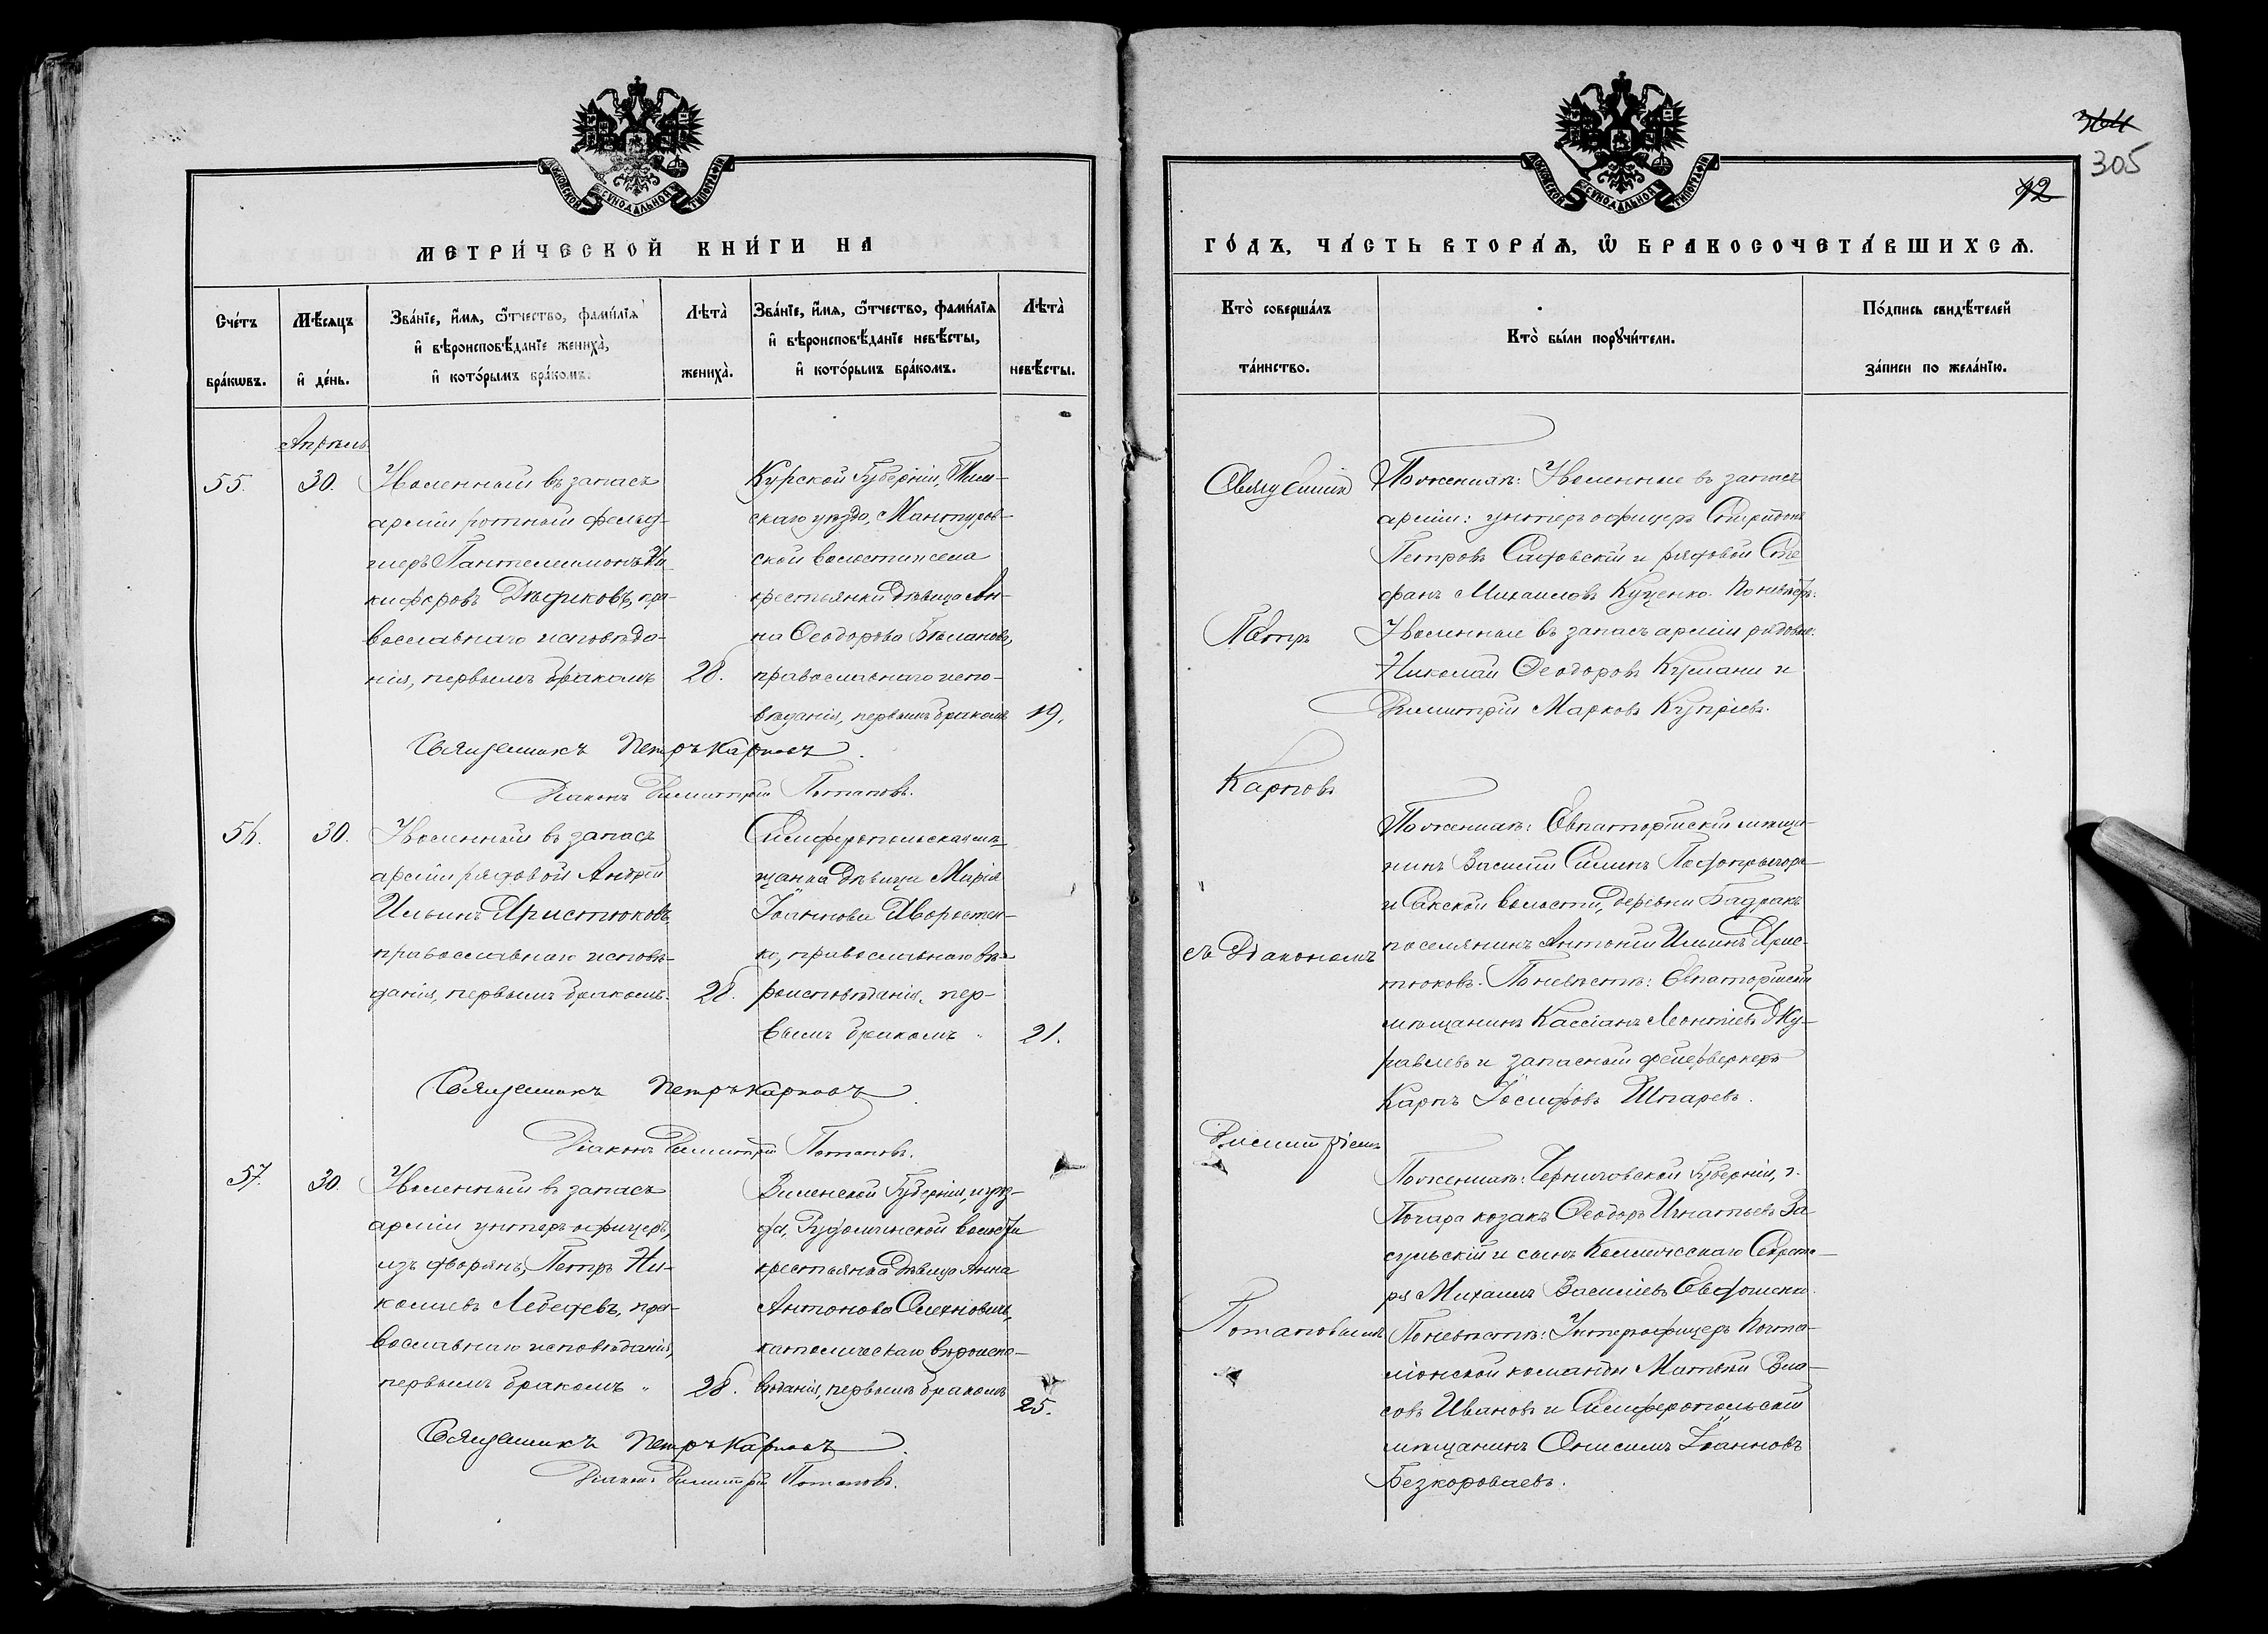 МОСКОВСКОЙ СѴНОДАЛЬНОЙ ТИПОГРАФІИ
МЕТРИ́ЧЕСКОЙ КНИ́ГИ НА
Сче́тъ бра́кѡвъ.
Мѣ́сяцъ и҆ де́нь.
Зва́нїе, и҆́мѧ, ѻ҆́тчество, фами́лїѧ
и҆ вѣроисповѣ́данїе жениха̀,
и҆ кото́рымъ бра́комъ.
Лѣта̀ жениха̀.
Зва́нїе, и҆́мѧ, ѻ҆́тчество, фами́лїѧ
и҆ вѣроисповѣ́данїе невѣ́сты,
и҆ кото́рымъ бра́комъ.
Лѣта̀ невѣ́сты.
Апрѣль
55.
30.
Уволенный въ запасъ
арміи ротный фельд-
шеръ Пантелеимонъ Ни-
кифоровъ Дѣдиковъ, пра-
вославнаго исповѣда-
нія, первымъ бракомъ
28.
Курской Губерніи, Тим-
скаго уѣзда, Мантуров-
ской волости и села
крестьянки дѣвица Ан-
на Ѳеодорова Бѣланова,
православнаго испо-
вѣданія, первымъ бракомъ
19.
Священникъ Петръ Карповъ
Діаконъ Димитрій Потаповъ.
56.
30.
Уволенный въ запасъ
арміи рядовой Андрей
Ильинъ Аристюковъ,
православнаго исповѣ-
данія, первымъ бракомъ.
28.
Симферопольская мѣ-
щанка дѣвица Марія
Іоаннова Яворостен-
ко, православнаго вѣ-
роисповѣданія, пер-
вымъ бракомъ "
21.
Священникъ Петръ Карповъ
Діаконъ Димитрій Потаповъ.
57.
30.
Уволенный въ запасъ
арміи унтеръ-офицеръ,
изъ дворянъ, Петръ Ни-
колаевъ Лебедевъ, пра-
вославнаго исповѣданія,
первымъ бракомъ "
28.
Виленской Губерніи, и уѣз-
да, Рудоминской волости
крестьянка дѣвица Анна
Антонова Олехновичъ,
католическаго вѣроиспо-
вѣданія, первымъ бракомъ
25.
Священникъ Петръ Карповъ
Діаконъ Димитрій Потаповъ.
МОСКОВСКОЙ СѴНОДАЛЬНОЙ ТИПОГРАФІИ
364
305
42
ГО́ДЪ, ЧА́СТЬ ВТОРА́Ѧ, Ѽ БРАКОСОЧЕТА́ВШИХСѦ.
Кто̀ соверша́лъ та́инство.
Кто̀ бы́ли порꙋчи́тели.
По́дпись свидѣ́телей
за́писи по жела́нїю.
Священникъ
Петръ
Карповъ
съ Діакономъ
Димитріемъ
Потаповымъ
По женихѣ: Уволенные въ запасъ
арміи: унтеръ офицеръ Спиридонъ
Петровъ Садовскій и рядовой Сте
фанъ Михаиловъ Куценко. По невѣстѣ:
Уволенные въ запасъ арміи рядовые:
Николай Ѳеодоровъ Кумани и
Димитрій Марковъ Купріевъ.
По женихѣ: Евпаторійскій мѣща-
нинъ Василій Симинъ Подопригора
и Сакской волости, деревни Бадракъ
поселянинъ Антоній Ильинъ Арис-
тюковъ. По невѣстѣ: Евпаторійскій
мѣщанинъ Кассіанъ Леонтіевъ Жу-
равлевъ и запасный фейерверкеръ
Карпъ Іосифовъ Шпаревъ.
По женихѣ: Черниговской Губерніи, г.
Погара козакъ Ѳеодоръ Игнатьевъ За-
сульскій и сынъ Коллежскаго Секрета-
ря Михаилъ Василіевъ Евдошенко.
По невѣстѣ: Унтеръ офицеръ
команды Матвѣй Вла-
совъ Ивановъ и Симферопольскій
мѣщанинъ Онисимъ Іоанновъ
Безкороваевъ.